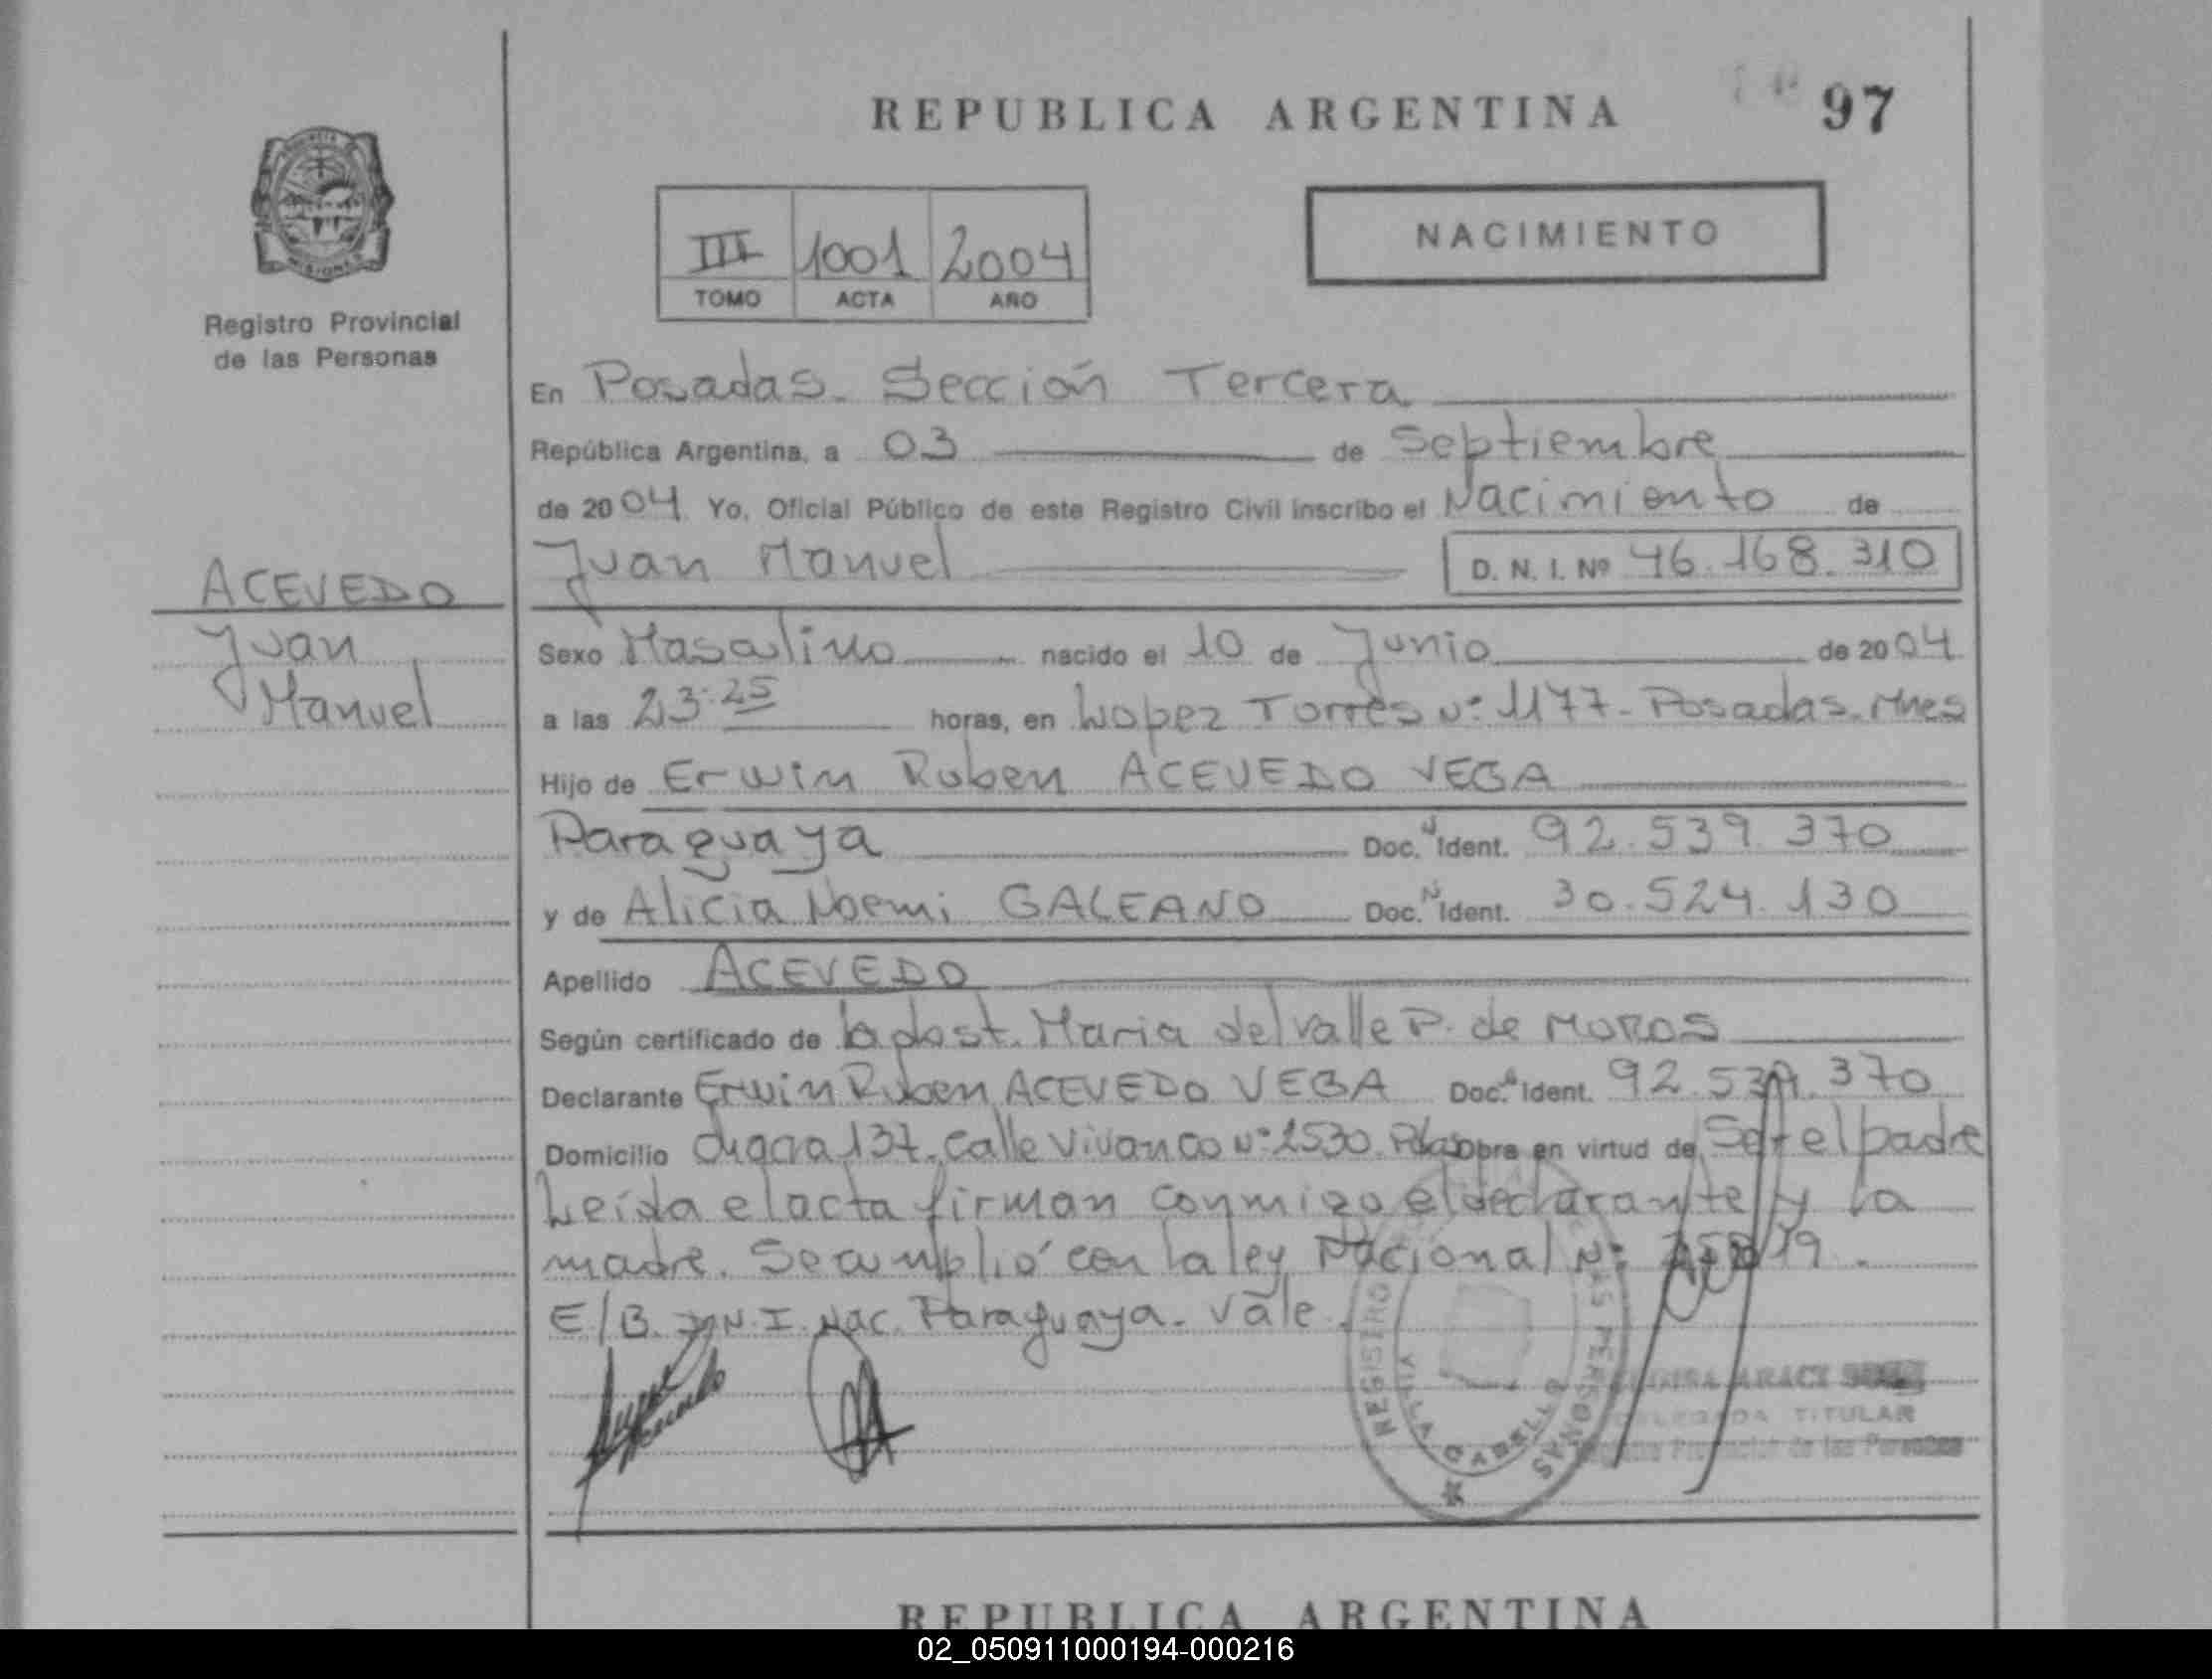 REPUBLICA ARGENTINA
97
NACIMIENTO
III 1001 2004
TOMO ACTA AÑO
Registro Provincial
de las Personas
En Posadas. Sección Tercera
República Argentina, a 03 de Septiembre
de 2004 Yo, Oficial Público de este Registro Civil inscribo el Nacimiento de
Juan Manuel D. N. I. Nº 46.168.310
ACEVEDO
Juan
Manuel
Sexo Masculino nacido el 10 de Junio de 2004
a las 23:25 horas, en Lopez Torres Nº 1177. Posadas. Mnes
Hijo de Erwin Ruben ACEVEDO VEGA
Paraguaya Doc. N Ident. 92.539.370
y de Alicia Noemi GALEANO Doc. N Ident. 30.524.130
Apellido ACEVEDO
Según certificado de la obst. Maria del valle P. de MOROS
Declarante Erwin Ruben ACEVEDO VEGA Doc. Ident. 92.539.370
Domicilio chacra 137. Calle Vivanco Nº 2530. Pdas obra en virtud de Ser el padre
Leída el acta firman conmigo el declarante y la
madre. Se cumplió con la ley Nacional Nº
E/B. D.N.I. Nac. Paraguaya. Vale.
REGISTRO
AS PERSONAS
VILLA CABELLO
ARACI
DELEGADA TITULAR
Registro Provincial de las Personas
REPUBLICA ARGENTINA
02_050911000194-000216